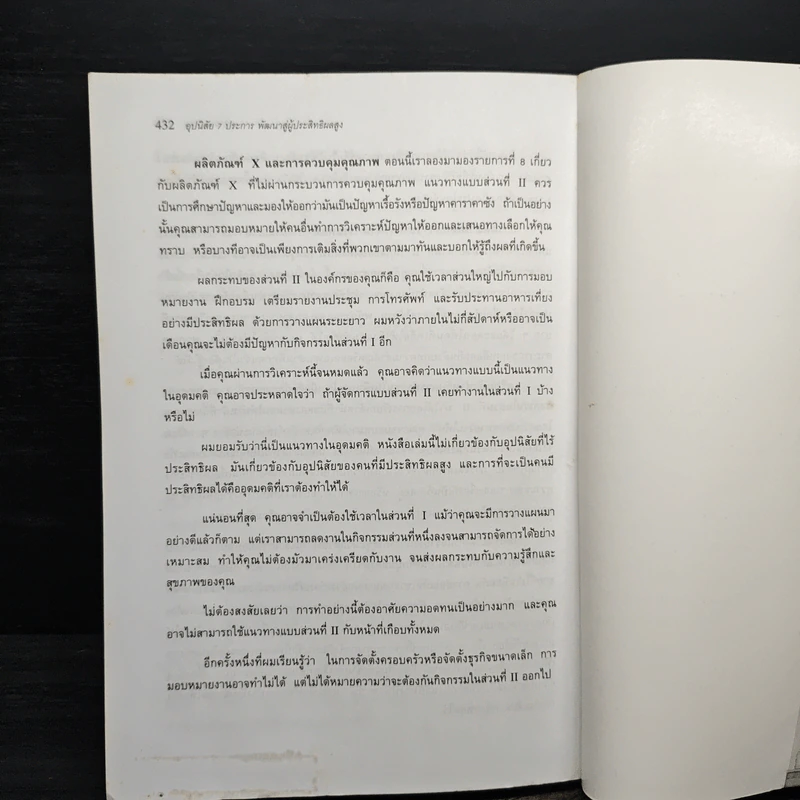 432 อุปนิสัย 7 ประการ พัฒนาสู่ผู้ประสิทธิผลสูง
ผลิตภัณฑ์ X และการควบคุมคุณภาพ ตอนนี้เราลองมามองรายการที่ 8 เกี่ยว
กับผลิตภัณฑ์ X ที่ไม่ผ่านกระบวนการควบคุมคุณภาพ แนวทางแบบส่วนที่ II ควร
เป็นการศึกษาปัญหาและมองให้ออกว่ามันเป็นปัญหาเรื้อรังหรือปัญหาคาราคาซัง ถ้าเป็นอย่าง
นั้นคุณสามารถมอบหมายให้คนอื่นทำการวิเคราะห์ปัญหาให้ออกและเสนอทางเลือกให้คุณ
ทราบ หรือบางทีอาจเป็นเพียงการเติมสิ่งที่พวกเขาตามมาทันและบอกให้รู้ถึงผลที่เกิดขึ้น
ผลกระทบของส่วนที่ II ในองค์กรของคุณก็คือ คุณใช้เวลาส่วนใหญ่ไปกับการมอบ
หมายงาน ฝึกอบรม เตรียมรายงานประชุม การโทรศัพท์ และรับประทานอาหารเที่ยง
อย่างมีประสิทธิผล ด้วยการวางแผนระยะยาว ผมหวังว่าภายในไม่กี่สัปดาห์หรืออาจเป็น
เดือนคุณจะไม่ต้องมีปัญหากับกิจกรรมในส่วนที่ I อีก
เมื่อคุณผ่านการวิเคราะห์นี้จนหมดแล้ว คุณอาจคิดว่าแนวทางแบบนี้เป็นแนวทาง
ในอุดมคติ คุณอาจประหลาดใจว่า ถ้าผู้จัดการแบบส่วนที่ II เคยทำงานในส่วนที่ I บ้าง
หรือไม่
ผมยอมรับว่านี่เป็นแนวทางในอุดมคติ หนังสือเล่มนี้ไม่เกี่ยวข้องกับอุปนิสัยที่ไร้
ประสิทธิผล มันเกี่ยวข้องกับอุปนิสัยของคนที่มีประสิทธิผลสูง และการที่จะเป็นคนมี
ประสิทธิผลได้คืออุดมคติที่เราต้องทำให้ได้
แน่นอนที่สุด คุณอาจจำเป็นต้องใช้เวลาในส่วนที่ I แม้ว่าคุณจะมีการวางแผนมา
อย่างดีแล้วก็ตาม แต่เราสามารถลดงานในกิจกรรมส่วนที่หนึ่งลงจนสามารถจัดการได้อย่าง
เหมาะสม ทำให้คุณไม่ต้องมัวมาเคร่งเครียดกับงาน จนส่งผลกระทบกับความรู้สึกและ
สุขภาพของคุณ
ไม่ต้องสงสัยเลยว่า การทำอย่างนี้ต้องอาศัยความอดทนเป็นอย่างมาก และคุณ
อาจไม่สามารถใช้แนวทางแบบส่วนที่ II กับหน้าที่เกือบทั้งหมด
อีกครั้งหนึ่งที่ผมเรียนรู้ว่า ในการจัดตั้งครอบครัวหรือจัดตั้งธุรกิจขนาดเล็ก การ
มอบหมายงานอาจทำไม่ได้ แต่ไม่ได้หมายความว่าจะต้องกันกิจกรรมในส่วนที่ II ออกไป